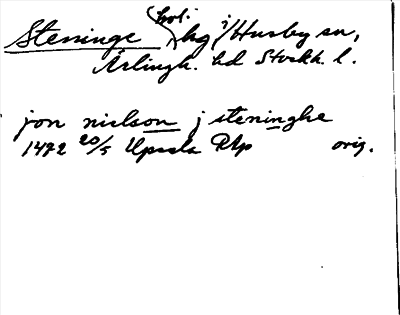 Steninge (trol. hg i) Husby sn,
Ärlingh. hd Stockh. l.
jon nielson j steninghe
1492 20/5 Upsala RAp orig.